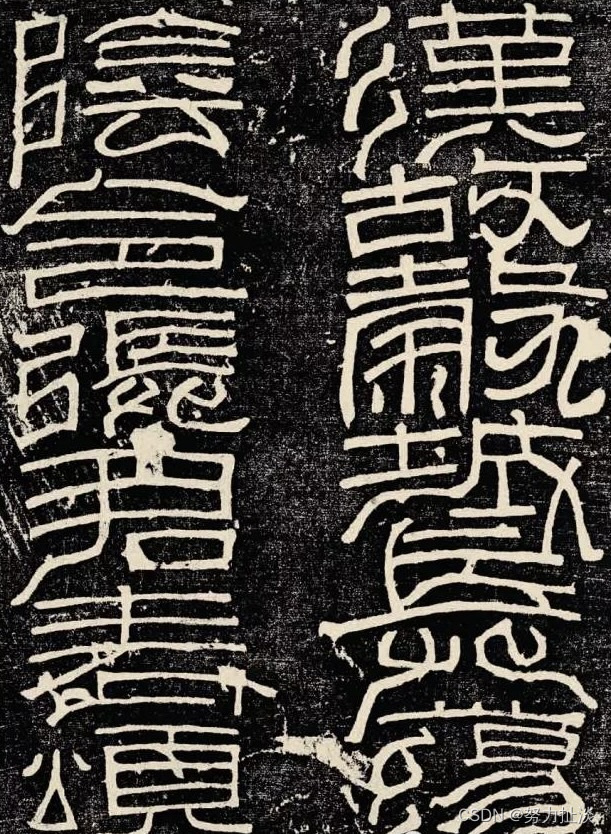 漢故穀城長蕩
陰令張君表頌
CSDN @努力扯淡